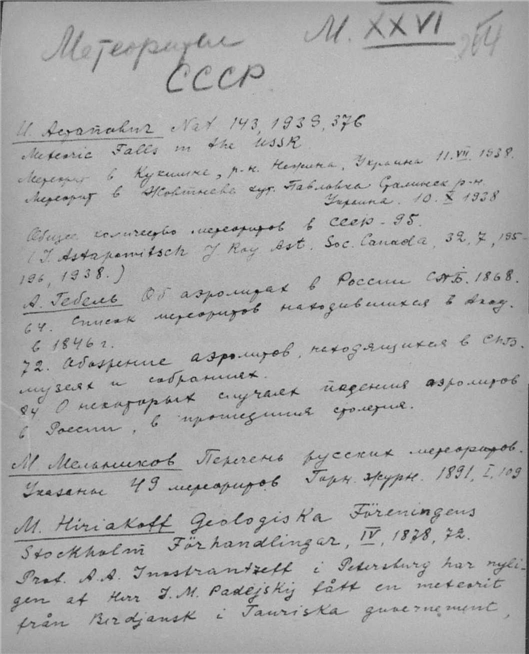 Метеориты М. XXVI
СССР
И. Астапович Nat 143, 1939, 376
Meteoric Falls in the USSR
Метеорит в Кукшине, р-н. Нежина, Украина 11.VII.1938.
Метеорит в Жовтнева хут. Павловка Сталинск р-н.
Украина. 10. X 1938
Общее количество метеоритов в СССР - 95.
(I. Astapowitsch J Roy Ast. Soc. Canada, 32, 7, 195-
196, 1938.)
А. Гебель Об аэролитах в России СПБ. 1868.
64. Список метеоритов находившихся в Акад.
в 1846 г.
72. Обозрение аэролитов, находящихся в СПБ.
музеях и собраниях.
84 О некоторых случаях падения аэролитов
в России, в прошедшия столетия.
М. Мельников Перечень русских метеоритов.
Указаны 49 метеоритов Горн. журн. 1891, I, 109
M. Hiriakoff Geologiska Föreningens
Stockholm Förhandlingar, IV, 1878, 72.
Prof. A. A. Inostrantzeff i Petersburg har nyli-
gen af Herr J. M. Padejskij fått en meteorit
från Berdjansk i Tauriska guvernement,